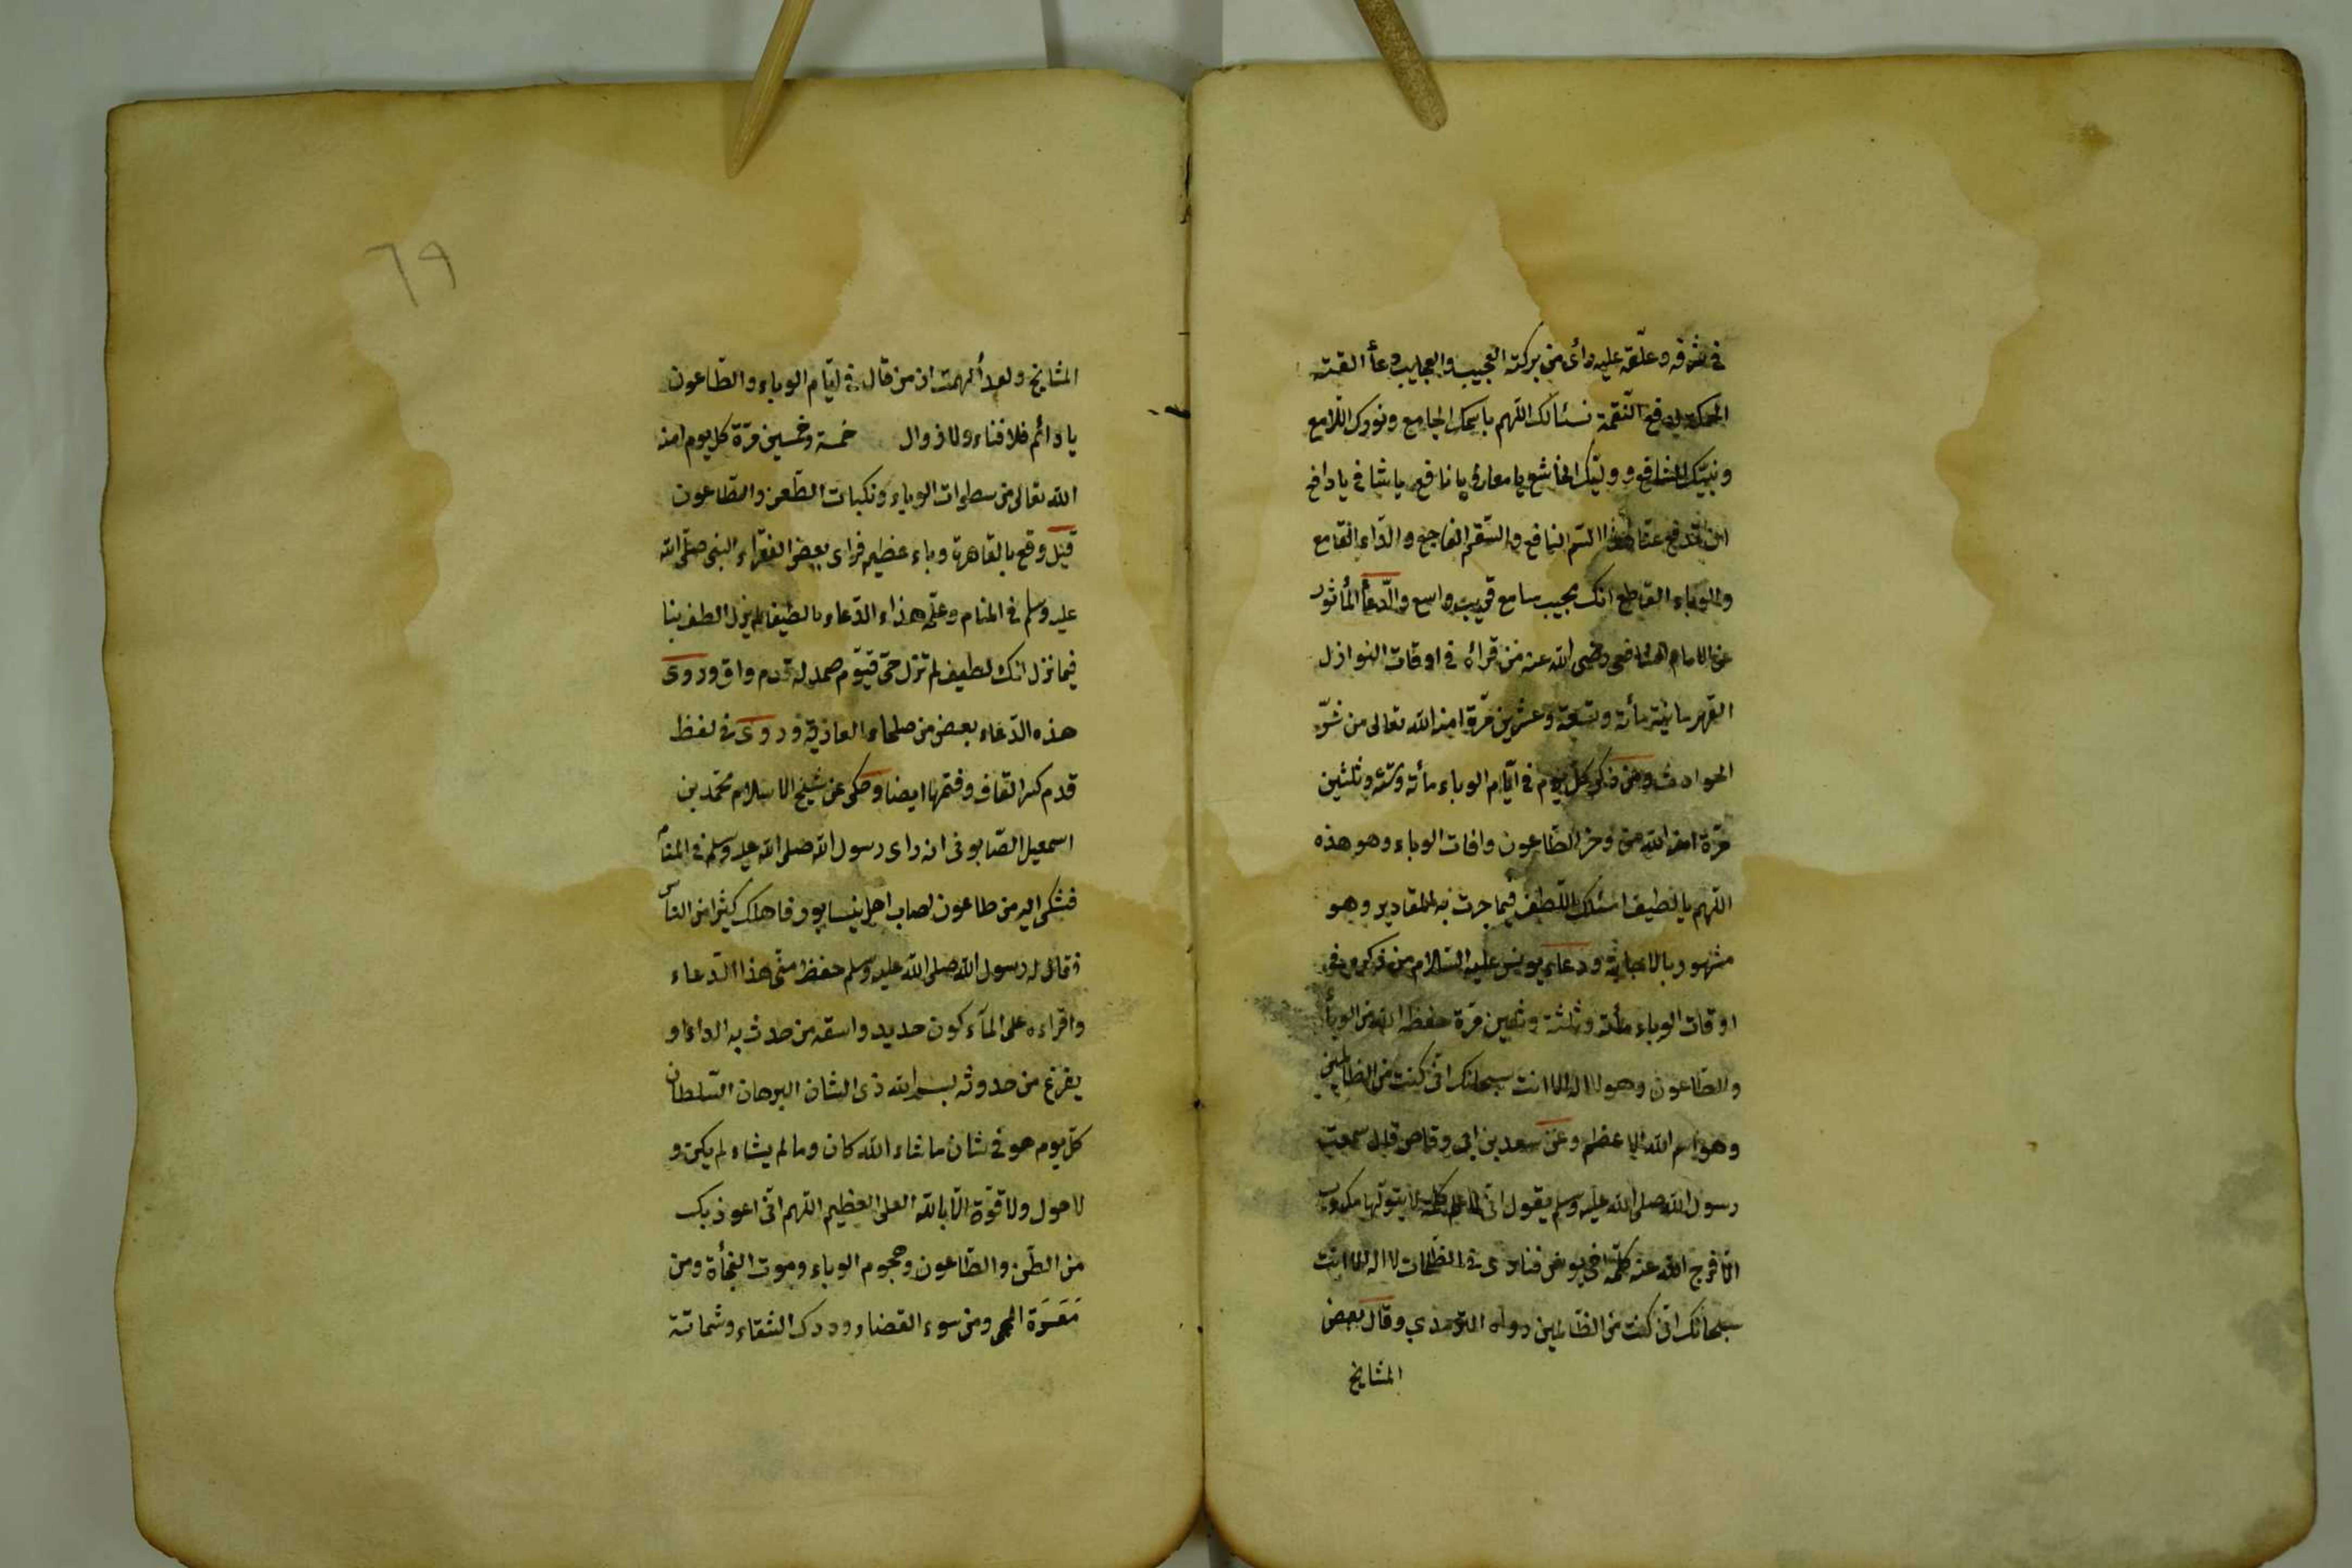 في شرفه وعلّقه عليه رأى من بركته العجيب والعجايب وعأ القبته
الحمكة لدفع النّقمة نسئالك اللّهم باسمك الجامع ونورك اللّامع
ونبيّك الشافع ووليّك الخاشع يا معافي يا نافع يا شافي يا دافع
ان تدفع عنّا هذا السّم النافع والسّقم الفاجع والدّاء القامع
والوباء القاطع انّك مجيب سامع قريب واسع والدّعأ المأثور
عن الامام الشافعي رضي الله عنه من قرأه في اوقات النوازل
القهرمانية مأئة وتسعة وعشرين مرّة امنه الله تعالى من شرّ
الحوادث ومن ذكر كلّ يوم في ايّام الوباء مأئة وستّة وثلثين
مرّة امنه الله من وخز الطّاعون وافات الوباء وهو هذه
اللّهم يا لطيف اسئلك اللّطف فيما جرت به المقادير وهو
مشهور بالاجابة ودعاء يونس عليه السّلام من ذكره في
اوقات الوباء مأئة وثلثة وثمين مرّة حفظه الله من الوبأ
والطّاعون وهو لا اله الا انت سبحانك انّى كنت من الظالمين
وهو اسم الله الاعظم وعن سعد بن ابى وقاص قال سمعت
رسول الله صلى الله عليه وسلم يقول انّى لاعلم كلمة لا يقولها مكروب
الّا فرج الله عنه كلمة اخى يونس فنادى في الظّلمات لا اله الا انت
سبحانك انّى كنت من الظّالمين رواه الترمذي وقال بعض
المشايخ
٦٩
المشايخ ولعد ألهمت ان من قال في ايّام الوباء والطّاعون
يا دائم فلا فناء ولا زوال خمسة وخمسين مرّة كل يوم امنه
الله تعالى من سطوات الوباء ونكبات الطّعن والطّاعون
قيل وقع بالقاهرة وباء عظيم فراى بعض الفقراء النبى صلّى الله
عليه وسلم في المنام وعلّمه هذاء الدّعاء يا لطيفا لم يزل الطف بنا
فيما نزل انك لطيف لم تزل حىّ قيّوم صمد له قدم واق وروى
هذه الدّعاء بعض من صلحاء العاذية وروى في لفظ
قدم كسر القاف وفتحها ايضا وحكى عن شيخ الاسلام محمّد بن
اسمعيل الصّابونى انه راى رسول الله صلى الله عليه وسلم في المنام
فشكى اليه من طاعون اصاب اهل نيسابور فاهلك كثيرا من النّاس
فقال له رسول الله صلى الله عليه وسلم حفظ منّى هذا الدّعاء
واقراءه على المآء كون حديد واسقه من حدث به الداء او
يفزغ من حدوثه بسم الله ذى الشان البرهان السّلطان
كلّ يوم هو في شان ما شاء الله كان وما لم يشاء لم يكن و
لا حول ولا قوّة الّا بالله العلى العظيم اللّهم انّى اعوذ بك
من الطّعن والطّاعون وهجوم الوباء وموت الفجأة ومن
مَعَرَة الحمى ومن سوء القضاء ودرك الشقاء وشماتة